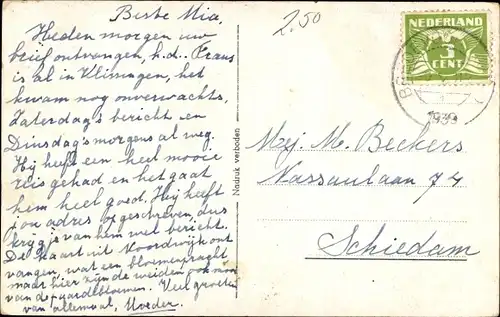 Beste Mia,
2.50
Heden morgen uw
brief ontvangen, k.d. Frans
is al in Vlissingen, het
kwam nog onverwachts,
Zaterdag's bericht en
Dinsdag's morgens al weg.
Hij heeft een heel mooie
reis gehad en het gaat
hem heel goed. Hij heeft
jou adres opgeschreven, dus
krijg je van hem wel bericht.
De kaart uit Noordwijk ont
vangen, wat een bloemenpracht
maar hier zijn de weiden ook mooi
van de paardebloemen. Veel groeten
van allemaal, Moeder.
Nadruk verboden
NEDERLAND
3
CENT
1939
Mej. M. Beckers
Nassaulaan 74
Schiedam